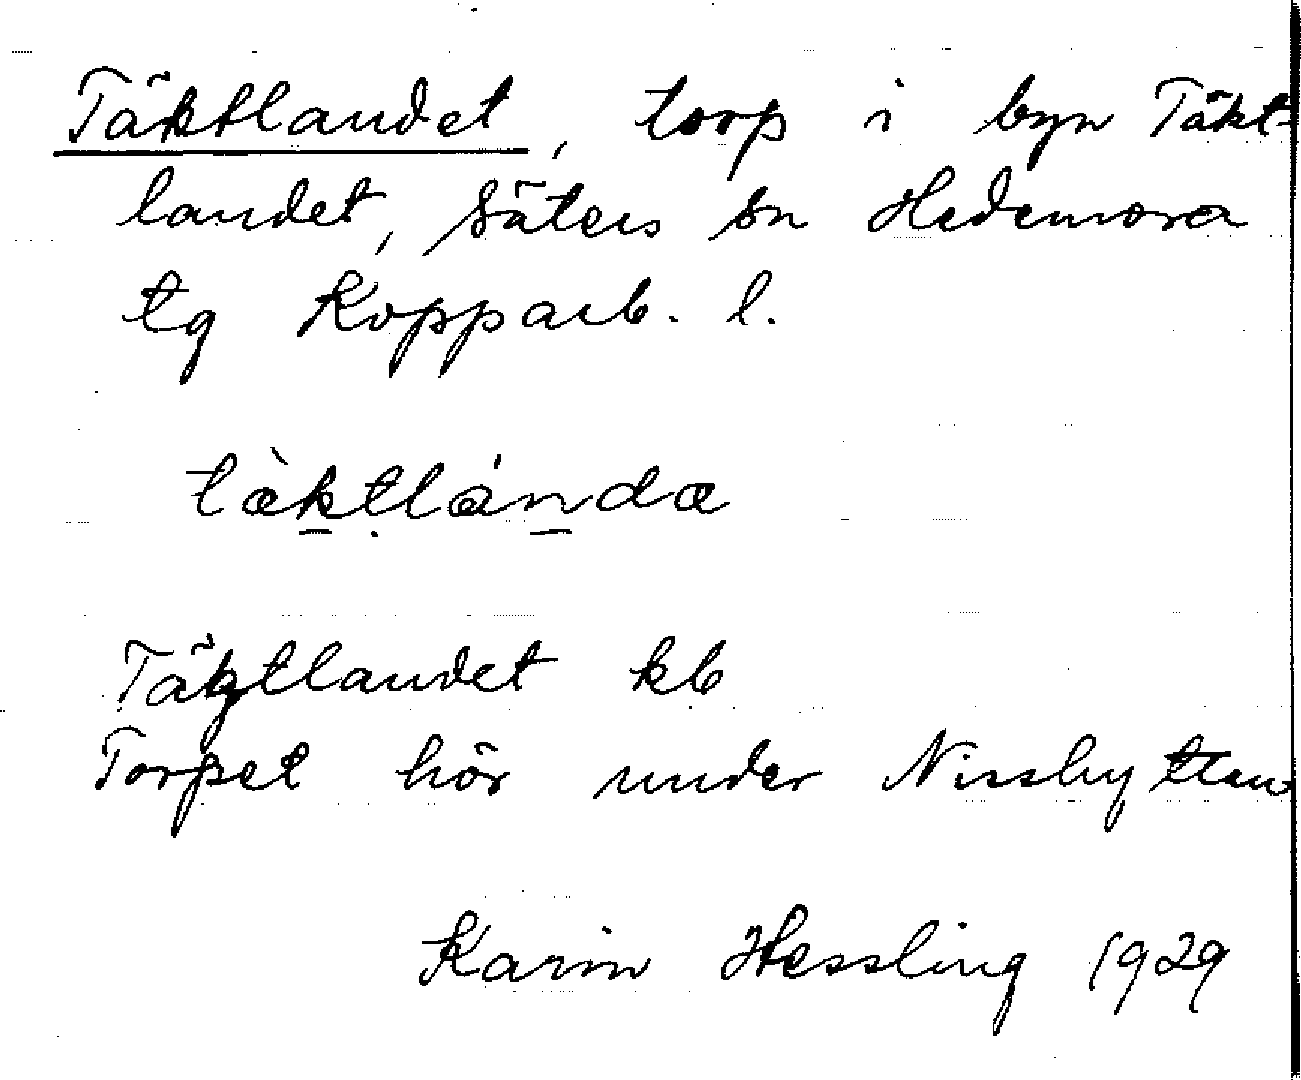 Täktlandet, torp i byn Täkt-
landet, Säters sn Hedemora
tg Kopparb. l.
tæ̀ktlánda
Tägtlandet kb
Torpet hör under Nisshyttan
Karin Hessling 1929